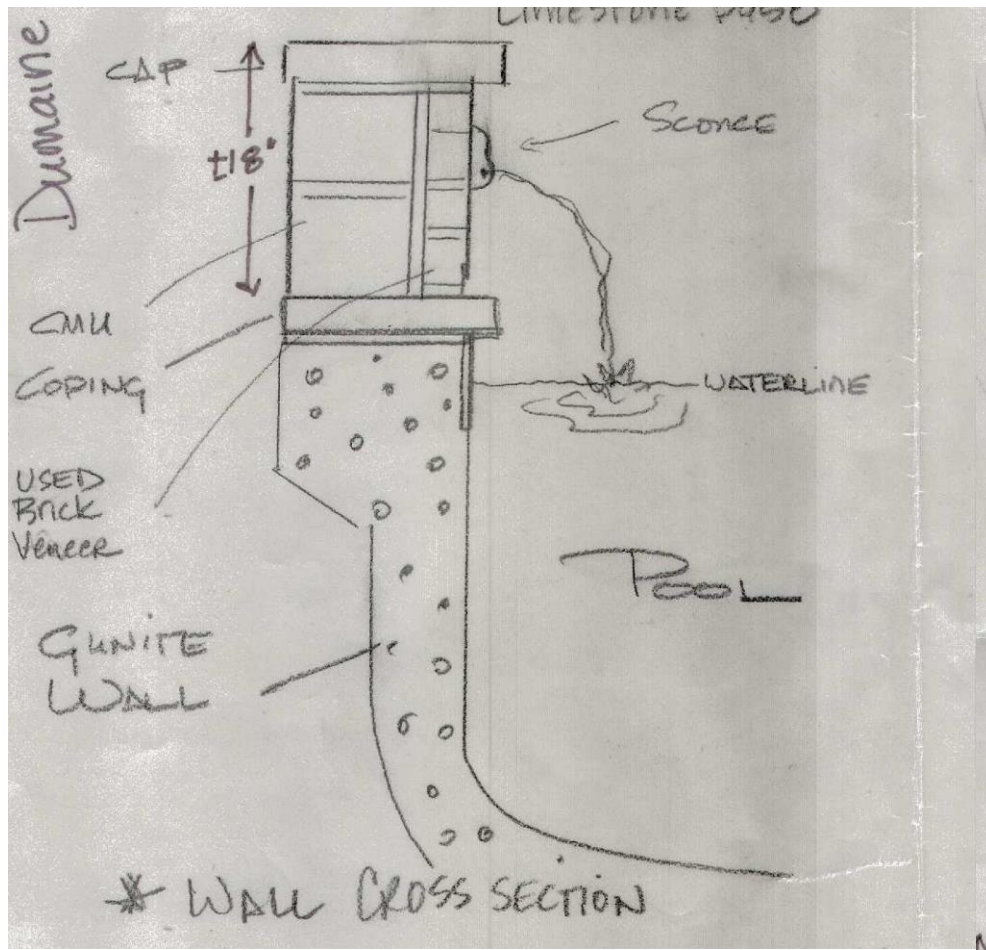 Limestone base
Dumaine
CAP
±18"
Sconce
CMU
COPING
WATERLINE
USED
Brick
Veneer
POOL
GUNITE
WALL
* WALL CROSS SECTION